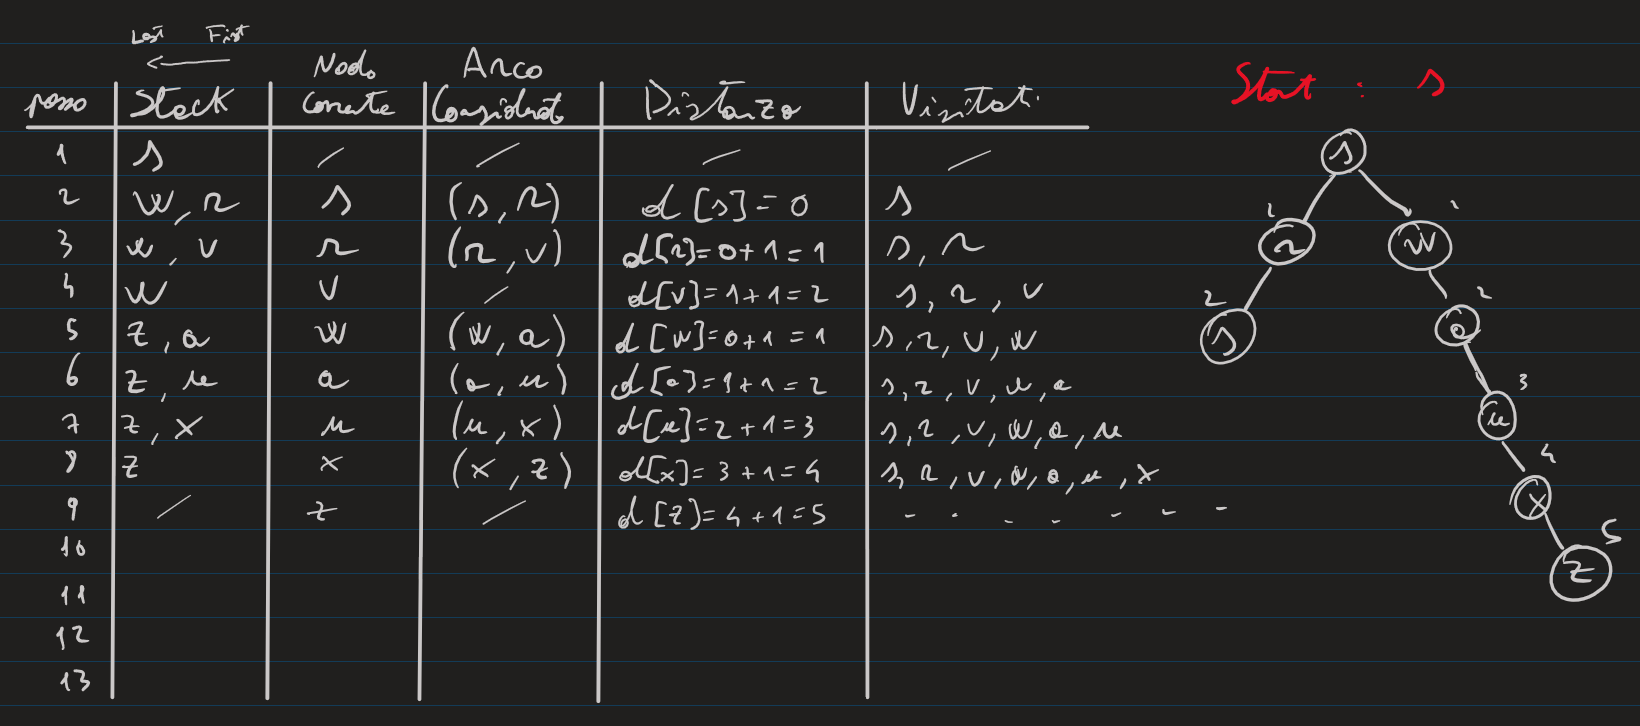 Last First
Nodo Arco
passo Stack Corrente Considerat Distanza Visitati
Start : s
1 s / / / /
2 w, r s (s, r) d[s]=0 s
3 w, v r (r, v) d[r]=0+1=1 s, r
4 w v / d[v]=1+1=2 s, r, v
5 z, a w (w, a) d[w]=0+1=1 s, r, v, w
6 z, u a (a, u) d[a]=1+1=2 s, r, v, w, a
7 z, x u (u, x) d[u]=2+1=3 s, r, v, w, a, u
8 z x (x, z) d[x]=3+1=4 s, r, v, w, a, u, x
9 / z / d[z]=4+1=5 - - - - - - -
10
11
12
13
s
1 1
r w
2 2
s a
3
u
4
x
5
z